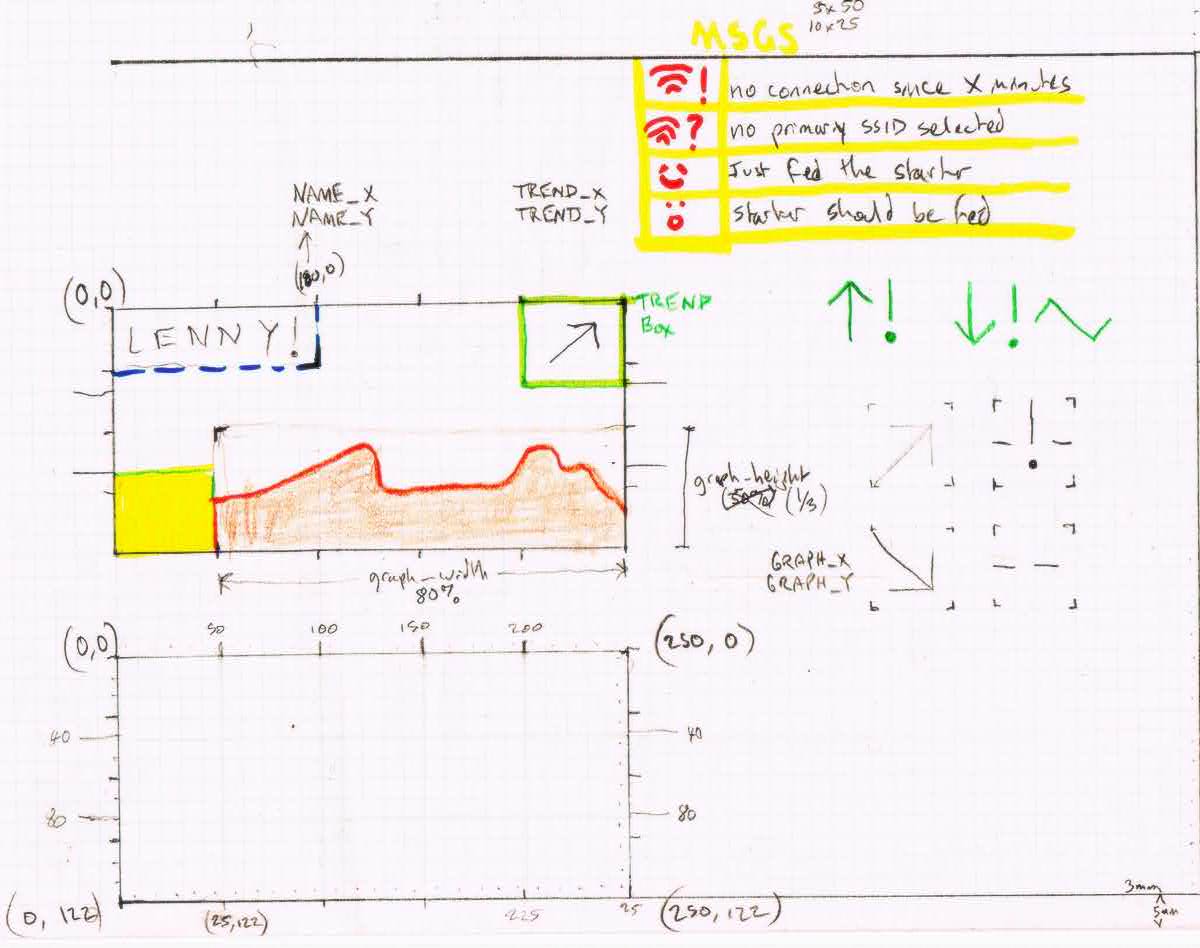 5x50
10x25
MSGS
! no connection since X minutes
? no primary SSID selected
Just fed the starter
starter should be fed
NAME_X
NAME_Y
TREND_X
TREND_Y
(0,0)
TREND
Box
LENNY!
! !
graph-height
(1/3)
graph-width
80%
GRAPH_X
GRAPH_Y
(0,0) 50 100 150 200 (250, 0)
40 40
80 80
(0, 122) (25,122) 225 25 (250, 122)
3mm
5mm